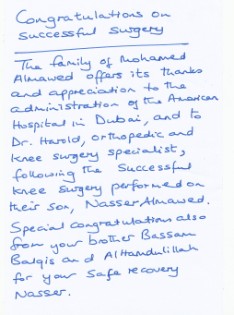 Congratulations on
Successful Surgery
The family of Mohamed
Almawed offers its thanks
and appreciation to the
administration of the American
Hospital in Dubai, and to
Dr. Harold, orthopedic and
knee surgery specialist,
following the Successful
knee surgery performed on
their son, Nasser Almawed.
Special congratulations also
from your brother Bassam
Balqis and AlHamdulillah
for your safe recovery
Nasser.